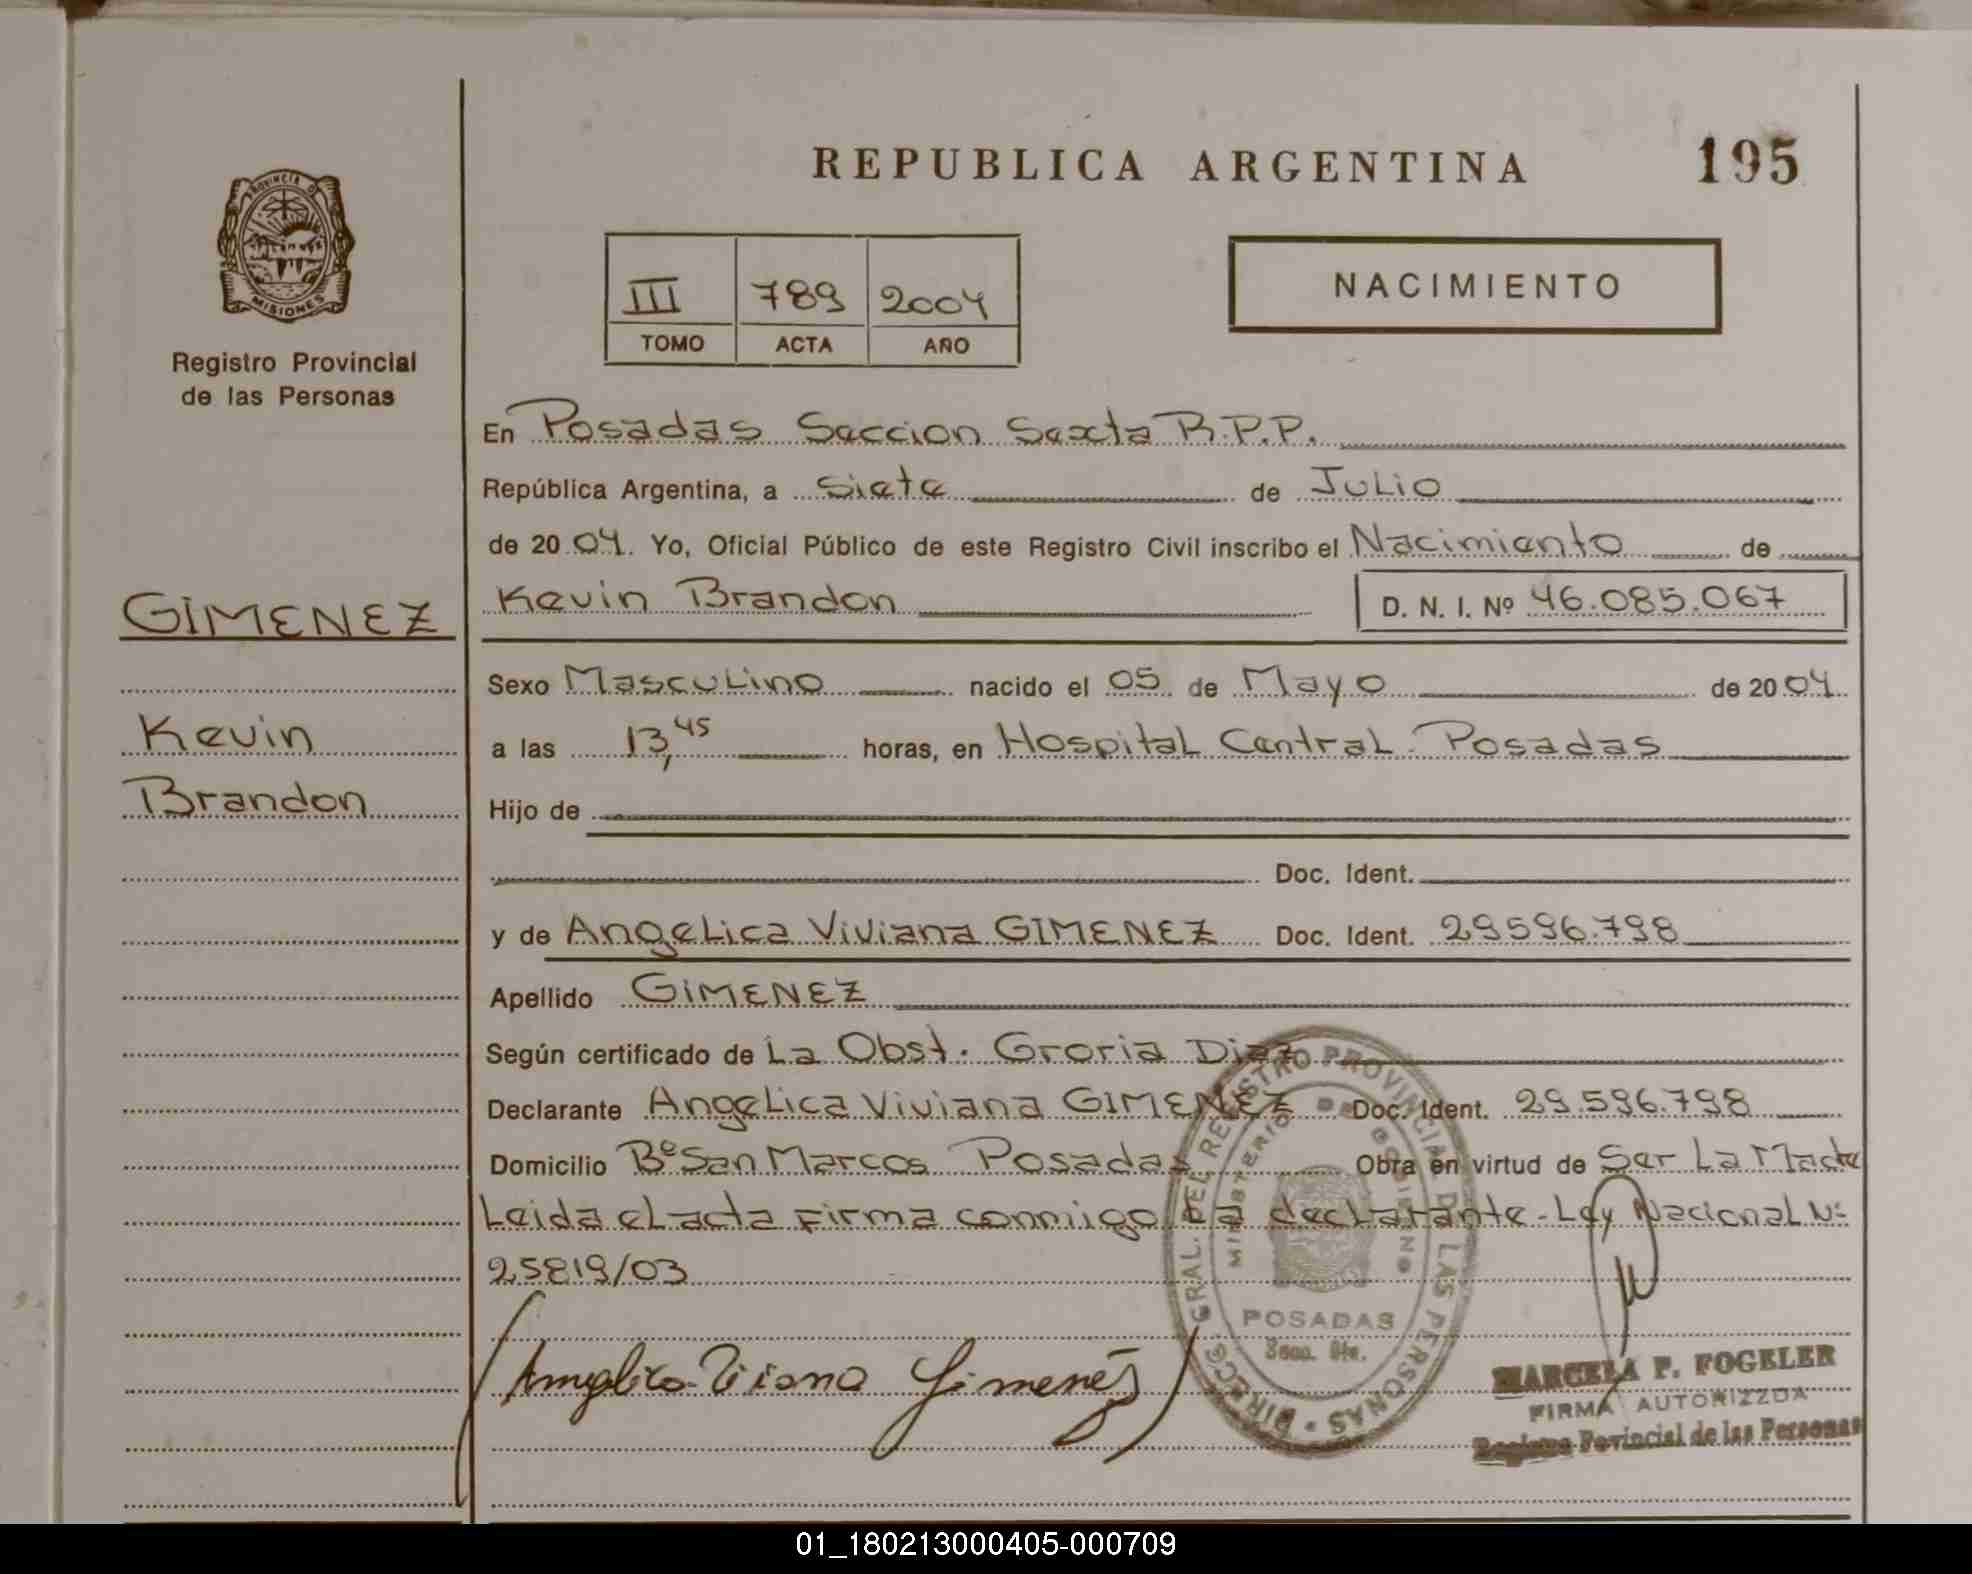 REPUBLICA ARGENTINA
195
PROVINCIA D
MISIONES
Registro Provincial
de las Personas
III 789 2004
TOMO ACTA AÑO
NACIMIENTO
En Posadas Seccion Sexta R.P.P.
República Argentina, a Siete de Julio
de 2004. Yo, Oficial Público de este Registro Civil inscribo el Nacimiento de
Kevin Brandon D. N. I. Nº 46.085.067
GIMENEZ
Kevin
Brandon
Sexo Masculino nacido el 05 de Mayo de 2004
a las 13,45 horas, en Hospital Central. Posadas
Hijo de
Doc. Ident.
y de Angelica Viviana GIMENEZ Doc. Ident. 29596.798
Apellido GIMENEZ
Según certificado de La Obst. Groria Diaz
Declarante Angelica Viviana GIMENEZ Doc. Ident. 29.596.798
Domicilio Bº San Marcos Posadas Obra en virtud de Ser La Madre
Leida el acta firma conmiigo La declarante - Ley Nacional Nº
25819/03
DIRECC. GRAL. DEL REGISTRO PROVINCIAL DE LAS PERSONAS
MINISTERIO DE GOBIERNO
POSADAS
Secc. 6ta.
Viviana Gimenez
MARCELA P. FOGELER
FIRMA AUTORIZZDA
Registro Povincial de las Personas
01_180213000405-000709